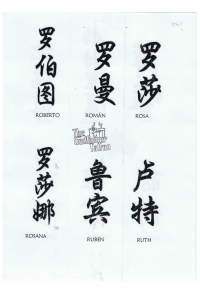 罗伯图
ROBERTO
罗曼
ROMÁN
罗莎
ROSA
The
罗莎娜
ROSANA
鲁宾
RUBEN
卢特
RUTH